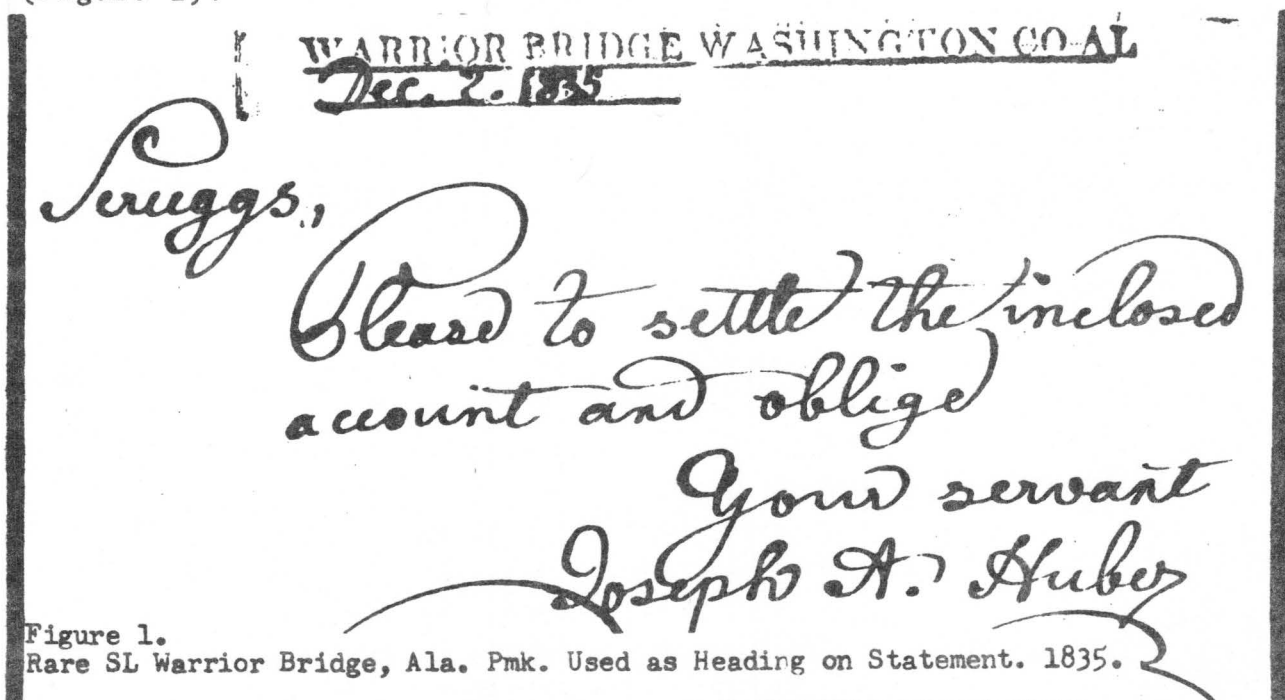 WARRIOR BRIDGE WASHINGTON CO AL
Dec. 2. 1835
Scruggs.,
Please to settle the inclosed
account and oblige
Your servant
Joseph A. Huber
Figure 1.
Rare SL Warrior Bridge, Ala. Pmk. Used as Heading on Statement. 1835.